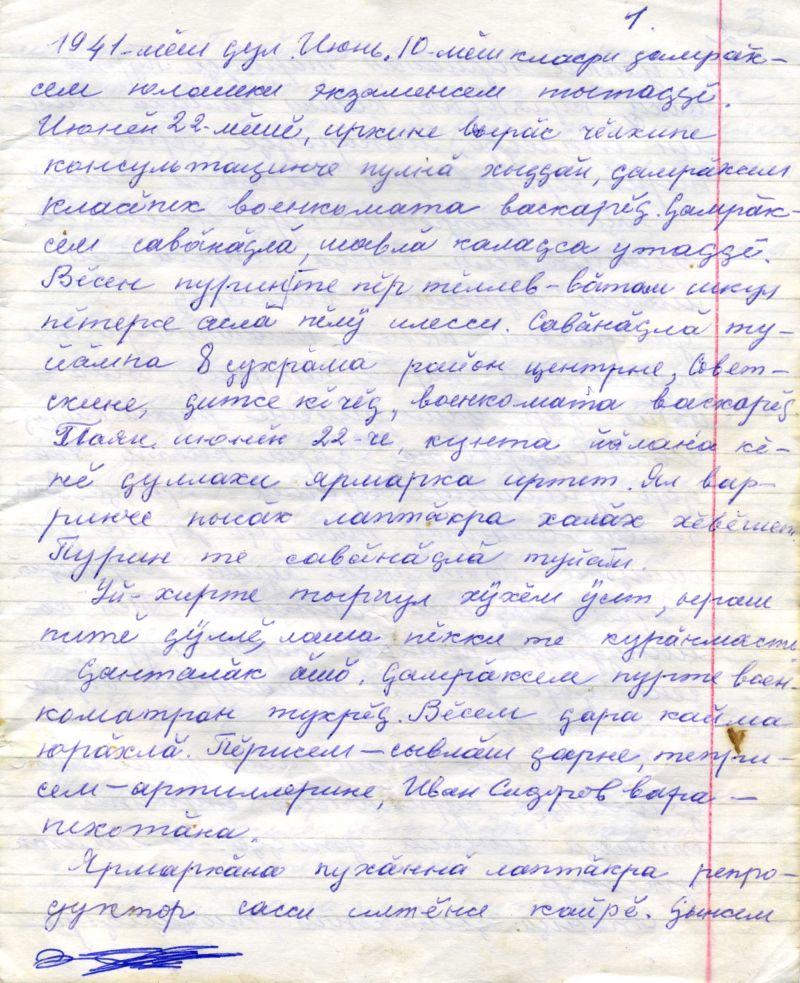 1.
1941-мĕш ҫул. Июнь. 10-мĕш класри ҫамрăк-
сем юлашки экзаменсем тытаҫҫĕ.
Июнĕн 22-мĕшĕ, ирхине вырăс чĕлхине
консультацинче пулнă хыҫҫăн, ҫамрăксем
класĕпех военкомата васкарĕҫ. Ҫамрăк-
сем савăнăҫлă, шавлă калаҫса утаҫҫĕ.
Вĕсен пурин те пĕр тĕллев – вăтам шкул
пĕтерсе аслă пĕлӳ илесси. Савăнăҫлă ту-
йăмпа 8 ҫухрăма район центрне, Совет-
скине, ҫитсе кĕчĕҫ, военкомата васкарĕҫ
Паян, июнĕн 22-че, кунта йăлана кĕ-
нĕ ҫуллахи ярмарка иртет. Ял вар-
ринче пысăк лаптăкра халăх хĕвĕшет.
Пурин те савăнăҫлă туйăм.
Уй-хирте тырпул хӳхĕм ӳсет, ыраш
питĕ ҫӳллĕ, лаша пĕкки те курăнмасть
Ҫанталăк ăшă. Ҫамрăксем пурте воен-
коматран тухрĕҫ. Вĕсем ҫара кайма
юрăхлă. Пĕрисем – сывлăш ҫарне, тепри-
сем – артиллерине, Иван Сидоров вара –
пехотăна.
Ярмаркăна пухăннă лаптăкра репро-
дуктор сасси илтĕнсе кайрĕ. Ҫынсем